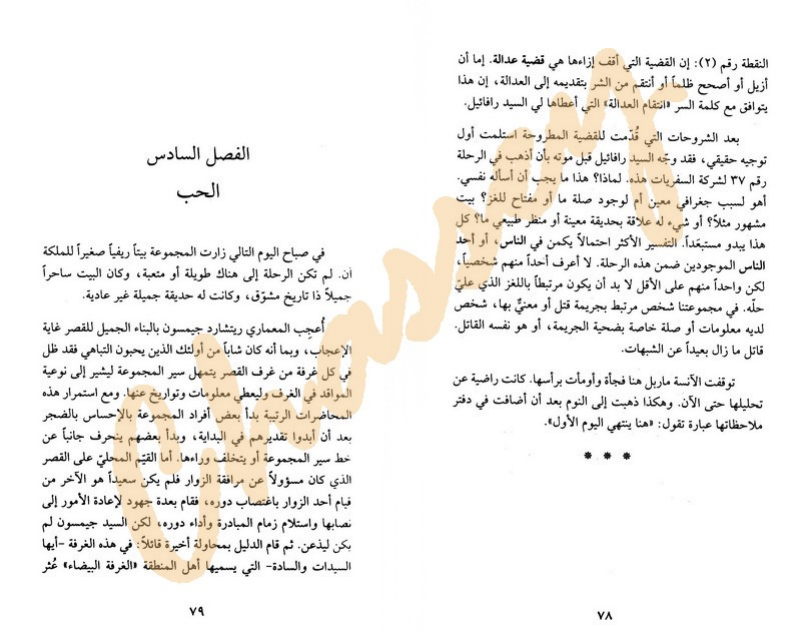 النقطة رقم (٢): إن القضية التي أقف إزاءها هي قضية عدالة. إما أن
أزيل أو أصحح ظلماً أو أنتقم من الشر بتقديمه إلى العدالة، إن هذا
يتوافق مع كلمة السر «انتقام العدالة» التي أعطاها لي السيد رافائيل.
بعد الشروحات التي قُدّمت للقضية المطروحة استلمت أول
توجيه حقيقي، فقد وجّه السيد رافائيل قبل موته بأن أذهب في الرحلة
رقم ٣٧ لشركة السفريات هذه. لماذا؟ هذا ما يجب أن أسأله نفسي.
أهو لسبب جغرافي معين أم لوجود صلة ما أو مفتاح للغز؟ بيت
مشهور مثلاً؟ أو شيء له علاقة بحديقة معينة أو منظر طبيعي ما؟ كل
هذا يبدو مستبعَداً. التفسير الأكثر احتمالاً يكمن في الناس، أو أحد
الناس الموجودين ضمن هذه الرحلة. لا أعرف أحداً منهم شخصياً،
لكن واحداً منهم على الأقل لا بد أن يكون مرتبطاً باللغز الذي عليّ
حلّه. في مجموعتنا شخص مرتبط بجريمة قتل أو معنيٌّ بها، شخص
لديه معلومات أو صلة خاصة بضحية الجريمة، أو هو نفسه القاتل.
قاتل ما زال بعيداً عن الشبهات.
توقفت الآنسة ماربل هنا فجأة وأومأت برأسها. كانت راضية عن
تحليلها حتى الآن. وهكذا ذهبت إلى النوم بعد أن أضافت في دفتر
ملاحظاتها عبارة تقول: «هنا ينتهي اليوم الأول».
* * *
٧٨
الفصل السادس
الحب
في صباح اليوم التالي زارت المجموعة بيتاً ريفياً صغيراً للملكة
آن. لم تكن الرحلة إلى هناك طويلة أو متعبة، وكان البيت ساحراً
جميلاً ذا تاريخ مشرّق، وكانت له حديقة جميلة غير عادية.
أُعجِب المعماري ريتشارد جيمسون بالبناء الجميل للقصر غاية
الإعجاب، وبما أنه كان شاباً من أولئك الذين يحبون التباهي فقد ظل
في كل غرفة من غرف القصر يتمهل سير المجموعة ليشير إلى نوعية
المواقد في الغرف وليعطي معلومات وتواريخ عنها. ومع استمرار هذه
المحاضرات الرتيبة بدأ بعض أفراد المجموعة بالإحساس بالضجر
بعد أن أبدوا تقديرهم في البداية، وبدأ بعضهم ينحرف جانباً عن
خط سير المجموعة أو يتخلف وراءها. أما القيّم المحليّ على القصر
الذي كان مسؤولاً عن مرافقة الزوار فلم يكن سعيداً هو الآخر من
قيام أحد الزوار باغتصاب دوره، فقام بعدة جهود لإعادة الأمور إلى
نصابها واستلام زمام المبادرة وأداء دوره، لكن السيد جيمسون لم
يكن ليذعن. ثم قام الدليل بمحاولة أخيرة قائلاً: في هذه الغرفة -أيها
السيدات والسادة- التي يسميها أهل المنطقة «الغرفة البيضاء» عُثر
٧٩